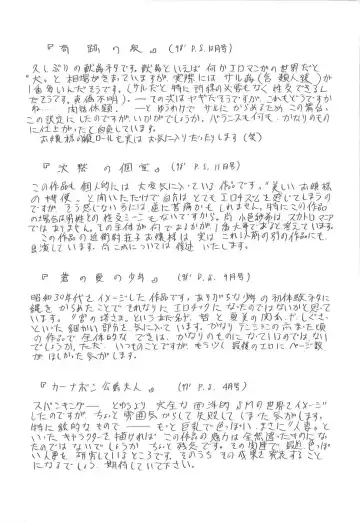 『奇蹟の夜』 (ｻﾞ P.S. 12月号)
久しぶりの獣姦ネタです。獣姦といえば何かエロマンガの世界だと
"犬"と相場がきまっていますが、実際にはサル姦(含 類人猿)が
1番多いんだそうです。(サルだと特に前様の必要もなく性交できるん
だそうです。真偽不明)。― での次はヤギだそうですが、これもどうですか
ね… 肉体体験)。― とゆうわけで サルにからめるため、この場合、
この設定にしたのですが、いかがでしょうか。バランスもよくて、かなりのもの
に仕上がったと自負しています。
お嬢様の縦ロールも実は お気に入りだったりします(笑)
『沈黙の個室』 (ｻﾞ P.S. 11月号)
この作品も個人的には大変気に入っている作品です。"美しいお嬢様
の排便"と聞いただけで自分はとてもエロチズムを感じてしまうの
ですが、そう感じない方には逆に苦痛かもしれません。特にこの作品
の場合は男性との性交シーンもないですから。尚、小色紗英はスカトロマンガ
ではありません。その主体が何であるかが1番大事であると考えています。
この作品の近衛刹那子お嬢様は、実はこれ以前の別の作品にも
出演しています。尚これについては後述いたします。
『蒼の愛の少年』 (ｻﾞ P.S. 9月号)
昭和30年代をイメージした作品です。ありがちな少年の初体験ネタに
縄を からめたことで それなりに エロチックに なったのではないかと思って
います。"宮の塔さま。というあだ名や、哲と亜美の関係、しぐさ、
といった細かい部分を気に入っています。かなりテンションの高まった頃
の作品で、全体的な できは、かなりのものに なっているのではない
でしょうか。ただ、いつものことですが、もう少し最後のエロにページ数
がほしかった気がします。
『カーナボン公爵夫人』 (ｻﾞ P.S. 4月号)
スパンキング― とゆうより 大きな西洋的 SMの世界をイメージ
したのですが、ちょっと雰囲気からして失敗してしまった気がします。
特に絵的なもので ― もっと巨乳で色っぽい、まさに"人妻"と
いったキャラクターを描ければ この作品の魅力は全然違ったものに
なったのではないでしょうか。ちょっと残念です。その関係で最近、色っぽ
い人妻を 研究しているところです。そのうち その成果を発表すること
になるでしょう。期待していて下さい。